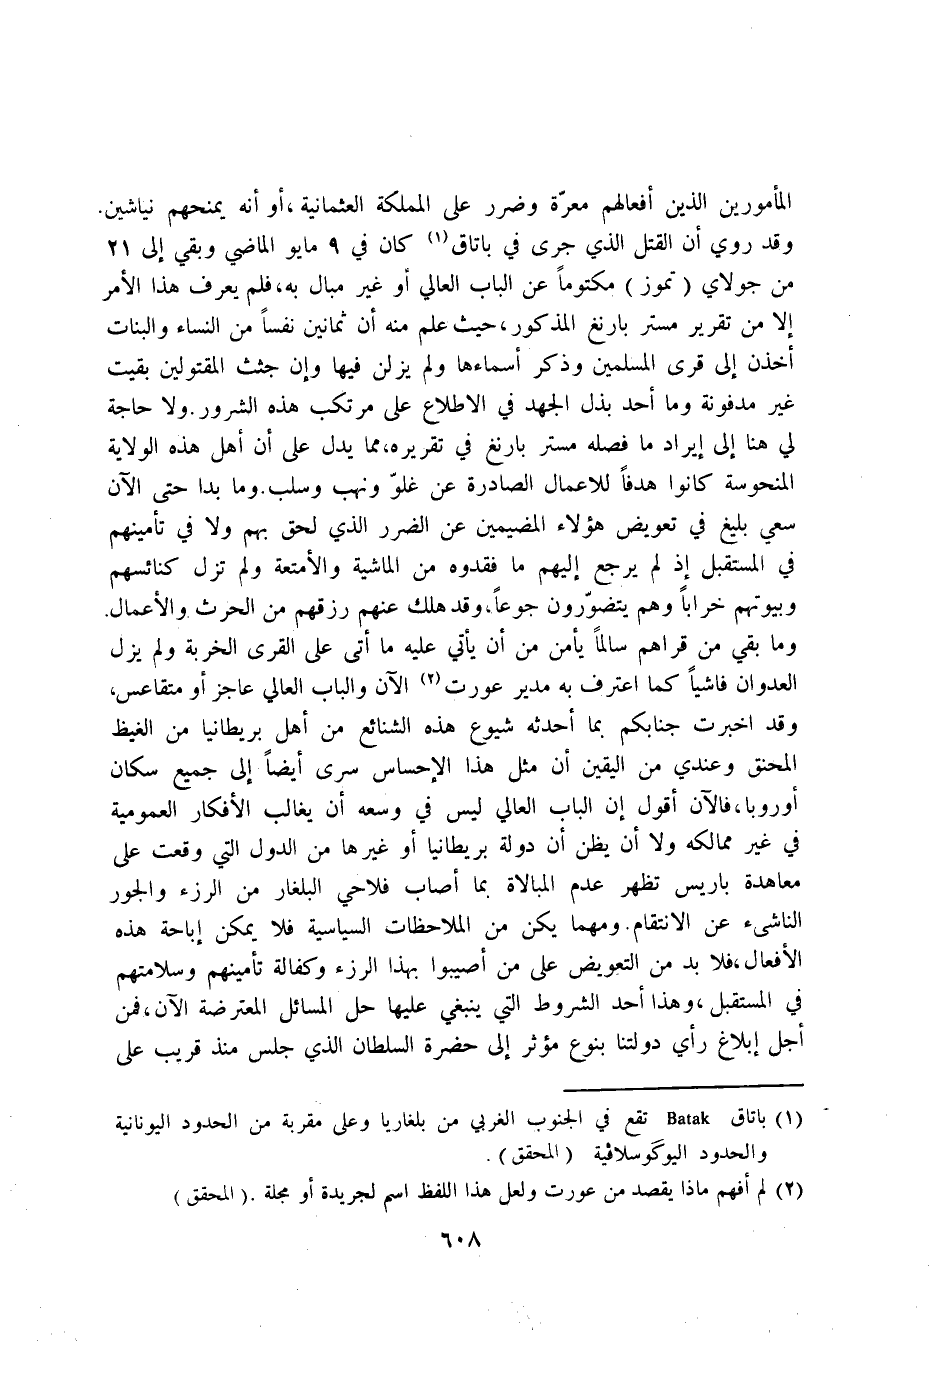 المأمورين الذين أفعالهم معرّة وضرر على المملكة العثمانية ،أو أنه يمنحهم نياشين.
وقد روي أن القتل الذي جرى في باتاق(١) كان في ٩ مايو الماضي وبقي إلى ٢١
من جولاي ( تموز ) مكتوماً عن الباب العالي أو غير مبال به،فلم يعرف هذا الأمر
إلا من تقرير مستر بارنغ المذكور،حيث علم منه أن ثمانين نفساً من النساء والبنات
أخذن إلى قرى المسلمين وذكر أسماءها ولم يزلن فيها وإن جثث المقتولين بقيت
غير مدفونة وما أحد بذل الجهد في الاطلاع على مرتكب هذه الشرور.ولا حاجة
لي هنا إلى إيراد ما فصله مستر بارنغ في تقريره،مما يدل على أن أهل هذه الولاية
المنحوسة كانوا هدفاً للاعمال الصادرة عن غلوّ ونهب وسلب.وما بدا حتى الآن
سعي بليغ في تعويض هؤلاء المضيمين عن الضرر الذي لحق بهم ولا في تأمينهم
في المستقبل إذ لم يرجع إليهم ما فقدوه من الماشية والأمتعة ولم تزل كنائسهم
وبيوتهم خراباً وهم يتضوّرون جوعاً،وقد هلك عنهم رزقهم من الحرث والأعمال.
وما بقي من قراهم سالماً يأمن من أن يأتي عليه ما أتى على القرى الخربة ولم يزل
العدوان فاشياً كما اعترف به مدير عورت(٢) الآن والباب العالي عاجز أو متقاعس،
وقد اخبرت جنابكم بما أحدثه شيوع هذه الشنائع من أهل بريطانيا من الغيظ
المحنق وعندي من اليقين أن مثل هذا الإحساس سرى أيضاً إلى جميع سكان
أوروبا،فالآن أقول إن الباب العالي ليس في وسعه أن يغالب الأفكار العمومية
في غير ممالكه ولا أن يظن أن دولة بريطانيا أو غيرها من الدول التي وقعت على
معاهدة باريس تظهر عدم المبالاة بما أصاب فلاحي البلغار من الرزء والجور
الناشىء عن الانتقام.ومهما يكن من الملاحظات السياسية فلا يمكن إباحة هذه
الأفعال،فلا بد من التعويض على من أصيبوا بهذا الرزء وكفالة تأمينهم وسلامتهم
في المستقبل ،وهذا أحد الشروط التي ينبغي عليها حل المسائل المعترضة الآن،فمن
أجل إبلاغ رأي دولتنا بنوع مؤثر إلى حضرة السلطان الذي جلس منذ قريب على
(١) باتاق Batak تقع في الجنوب الغربي من بلغاريا وعلى مقربة من الحدود اليونانية
والحدود اليوگوسلاڤية ( المحقق ) .
(٢) لم أفهم ماذا يقصد من عورت ولعل هذا اللفظ اسم لجريدة أو مجلة .( المحقق )
٦٠٨